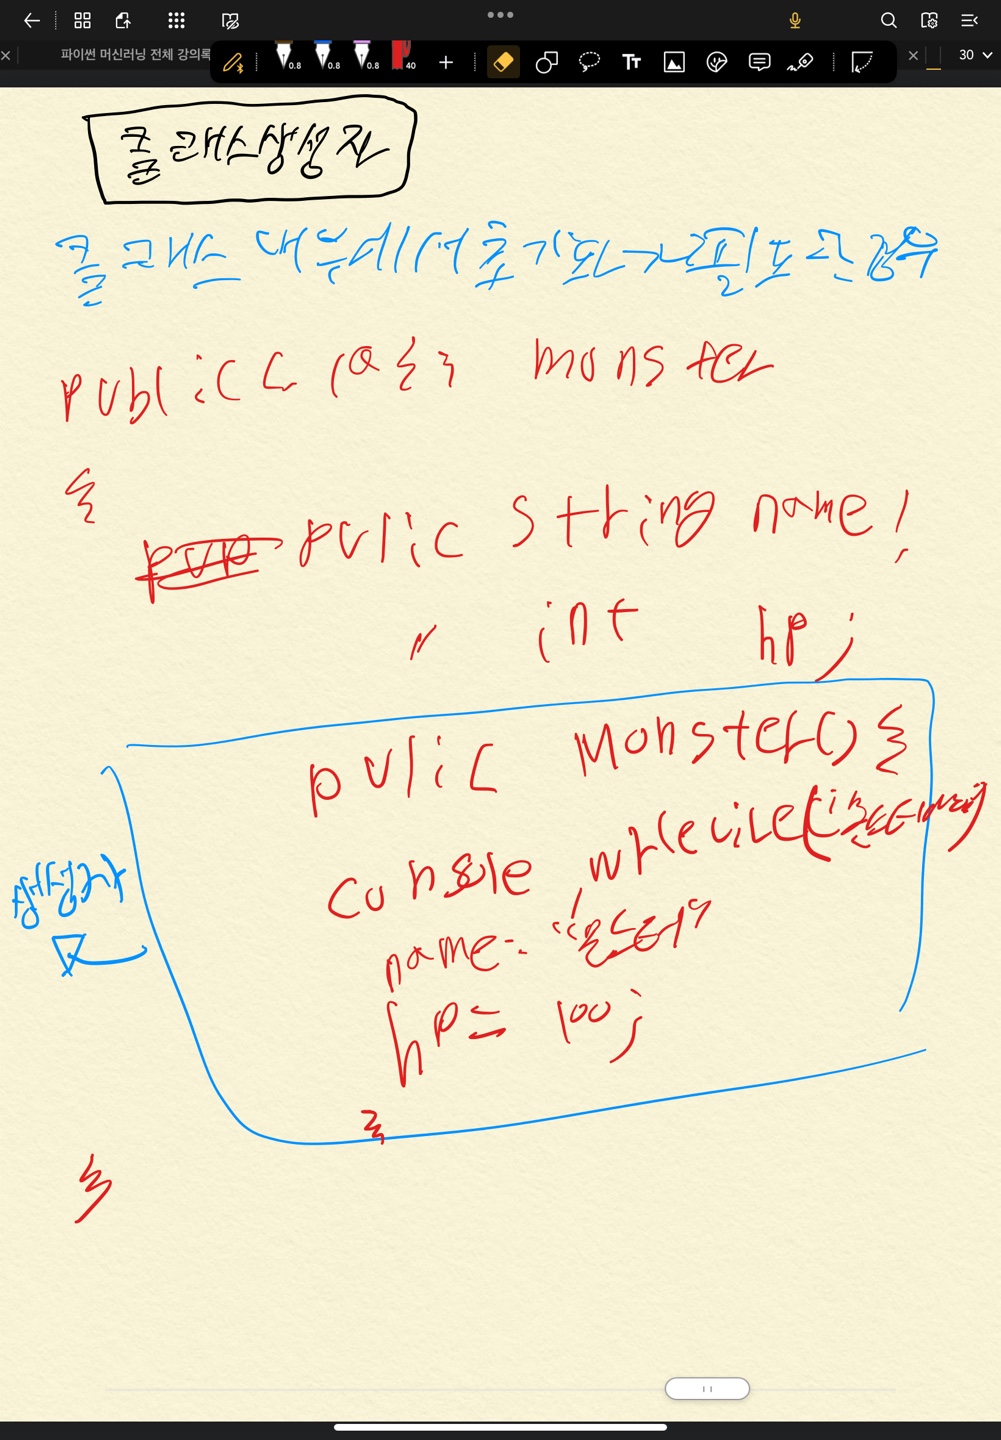 파이썬 머신러닝 전체 강의록
30
0.8 0.8 0.8 40
클래스생성자
클래스 내부에서 초기화가 필요한 경우
public class monster
{
pulic string name;
〃 int hp;
pulic Monster() {
console
name = "몬스터"
hp = 100;
}
생성자
}